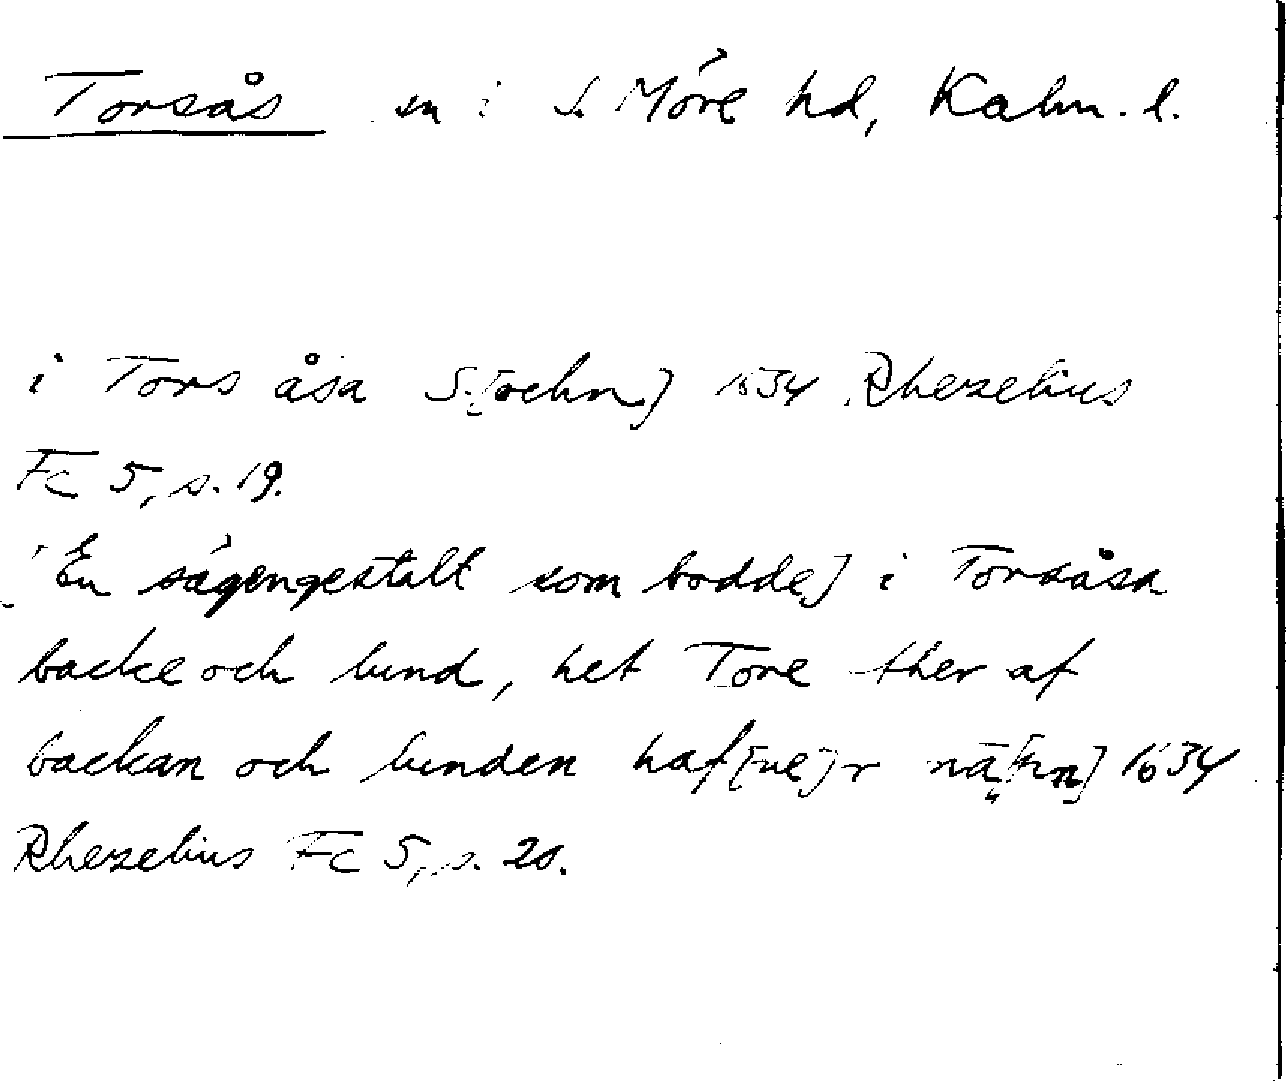 Torsås sn i S. Möre hd, Kalm. l.
i Tors åsa S.[ochn] 1634 Rhezelius
Fc 5, s. 19.
[En sägengestalt som bodde] i Torsåsa
backe och lund, het Tore ther af
backan och lunden haf[ve]r nä[fn] 1634
Rhezelius Fc 5, s. 20.